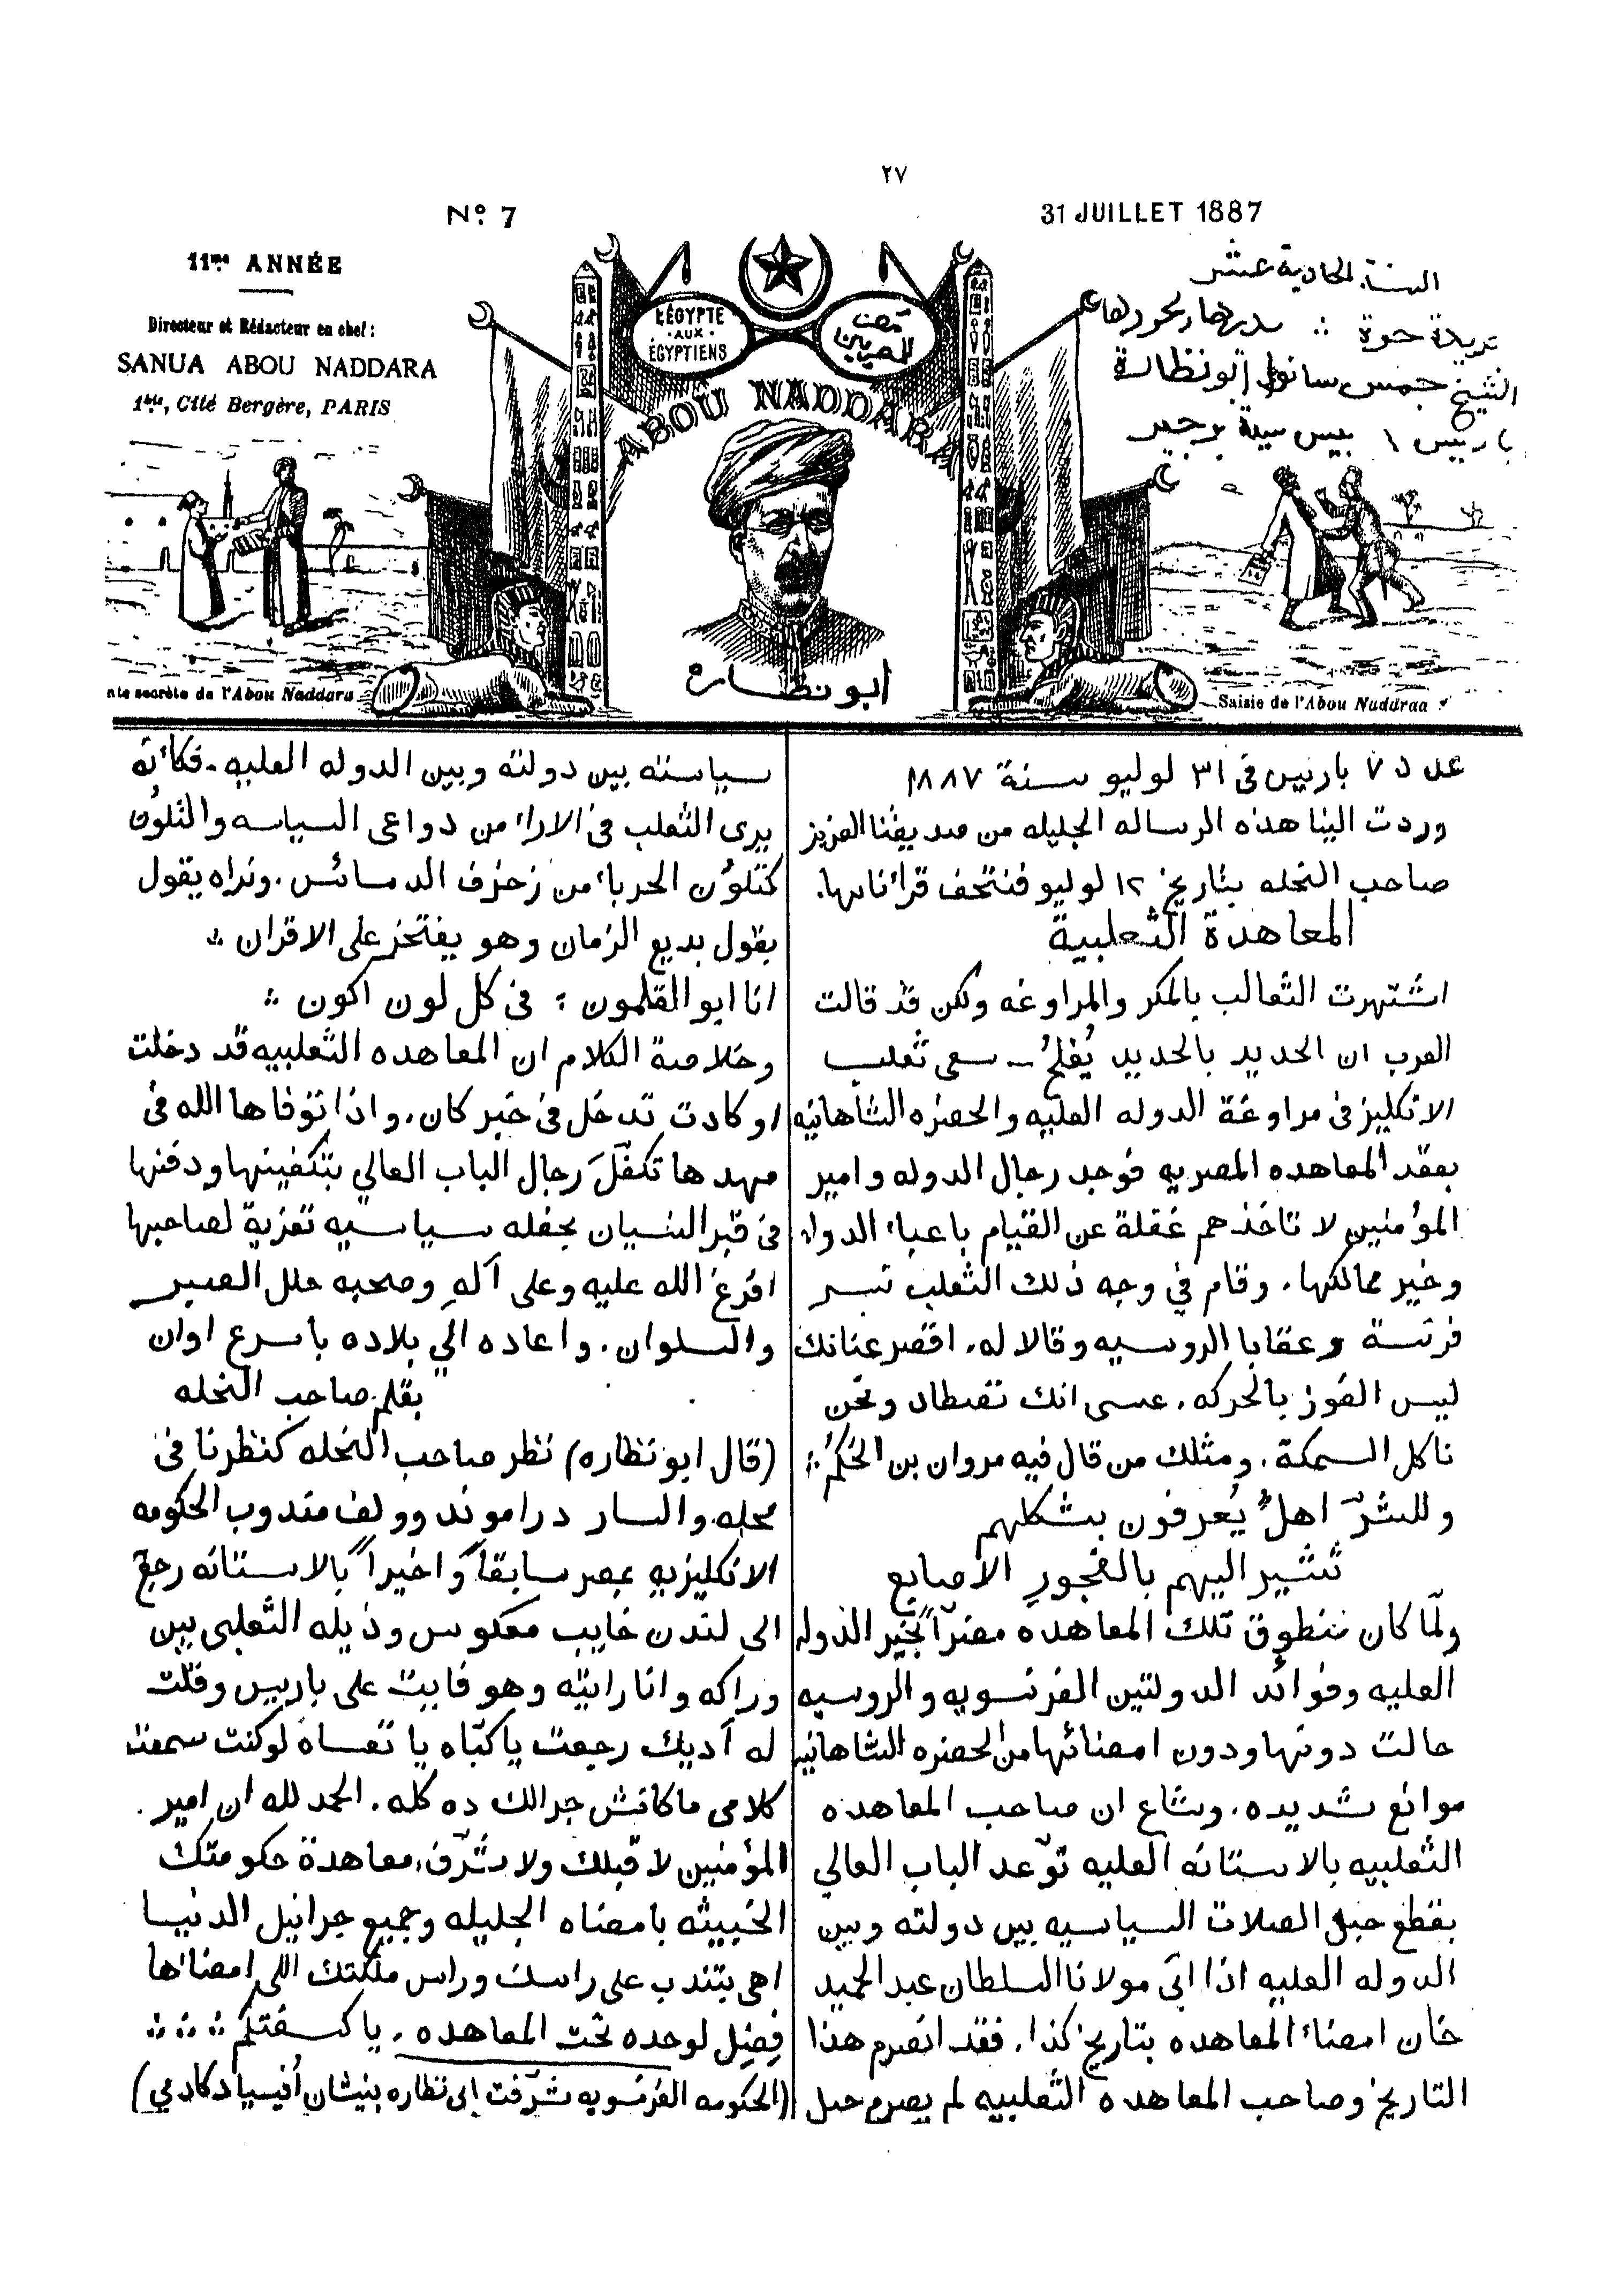 ٢٧
Nº 7
31 JUILLET 1887
11me ANNÉE
Directeur et Rédacteur en chef :
SANUA ABOU NADDARA
1bis, Cité Bergère, PARIS
السنة الحادية عشر
جريدة حرة ∴ مديرها ومحررها
الشيخ جمس سانوا ابو نظارة
باريس ١ بيس سيتة برجير
L'ÉGYPTE
AUX
ÉGYPTIENS
مصر
للمصريين
ABOU NADDARA
ابو نظاره
nte secrète de l'Abou Naddara
Saisie de l'Abou Naddraa
عدد ٧ باريس فى ٣١ لوليو سنة ١٨٨٧
وردت الينا هذه الرساله الجليله من صديقنا العزيز
صاحب النحله بتاريخ ١٢ لوليو فنتحف قرأنا بها.
المعاهدة الثعلبية
اشتهرت الثعالب بالمكر والمراوغه ولكن قد قالت
العرب ان الحديد بالحديد يُفلحُ ــ سعى ثعلب
الانكليز فى مراوغة الدوله العليه والحضره الشاهانيه
بعقد المعاهده المصريه فوجد رجال الدوله وامير
المؤمنين لا تاخذهم غفلة عن القيام باعباء الدوله
وخير ممالكها. وقام في وجه ذلك الثعلب نسر
فرنسة وعقابا الروسيه وقالا له. اقصر عنانك
ليس الفوز بالحركه. عسى انك تصطاد ونحن
ناكل السمكة. ومثلك من قال فيه مروان بن الحَكَمُ ∴
وللشرّ اهلٌ يُعرفون بشكلهم
تشير اليهم بالفجورِ الاصابع
ولمّا كان منطوق تلك المعاهده مضرّاً بخير الدوله
العليه وفوائد الدولتين الفرنسويه والروسيه
حالت دونها ودون امضائها من الحضره الشاهانيه
موانع شديده. وشاع ان صاحب المعاهده
الثعلبيه بالاستانه العليه توّعد الباب العالي
بقطع حبل الصلات السياسيه بين دولته وبين
الدوله العليه اذا ابى مولانا السلطان عبد الحميد
خان امضاء المعاهده بتاريخ كذا. فقد انصرم هذا
التاريخ وصاحب المعاهده الثعلبيه لم يصرم حبل
سياسته بين دولته وبين الدوله العليه ـ فكأنه
يرى الثعلب فى الاراء من دواعى السياسه والتلوُّن
كتلوُّن الحرباء من زخرف الدسائس. ونراه يقول
بقول بديع الزمان وهو يفتخر على الاقران ∴
انا ابو القلمون ∴ فى كل لون اكون ∴
وخلاصة الكلام ان المعاهده الثعلبيه قد دخلت
او كادت تدخل فى خبر كان. واذا توفاها الله فى
مهدها تكفّلَ رجال الباب العالي بتكفينها ودفنها
فى قبر النسيان بحفله سياسيه تعزية لصاحبها
افرغ الله عليه وعلى آلهِ وصحبه حلل الصبر
والسلوان. واعاده الي بلاده باسرع اوان
بقلم صاحب النحله
(قال ابو نظاره) نظر صاحب النحله كنظرنا فى
محله. والسار دراموند وولف مندوب الحكومه
الانكليزيه بمصر سابقاً واخيراً بالاستانه رجع
الى لندن خايب معكوس وذيله الثعلبى بين
وراكه وانا رايته وهو فايت على باريس وقلت
له آديك رجعت يا كبّاه يا تعساه لو كنت سمعت
كلامى ما كانش جرالك ده كله. الحمد لله ان امير
المؤمنين لا قبلك ولا شرّف معاهدة حكومتك
الخبيثه بامضاه الجليله وجميع جرانيل الدنيا
اهى بتندب على راسك وراس ملكتك اللى امضاءها
فِضِل لوحده تحت المعاهده. يا كسفتكم ∴ ∴ ∴
(الحكومه الفرنسويه شرّفت ابى نظاره بنيشان أفيسيا دكادمي)